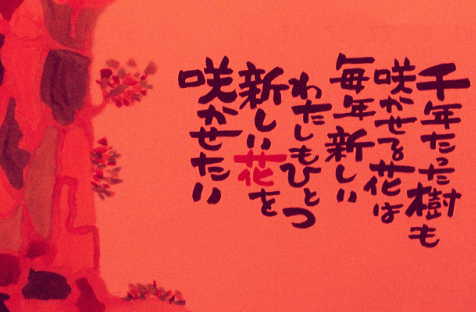 千年たった樹も
咲かせる花は
毎年新しい
わたしもひとつ
新しい花を
咲かせたい